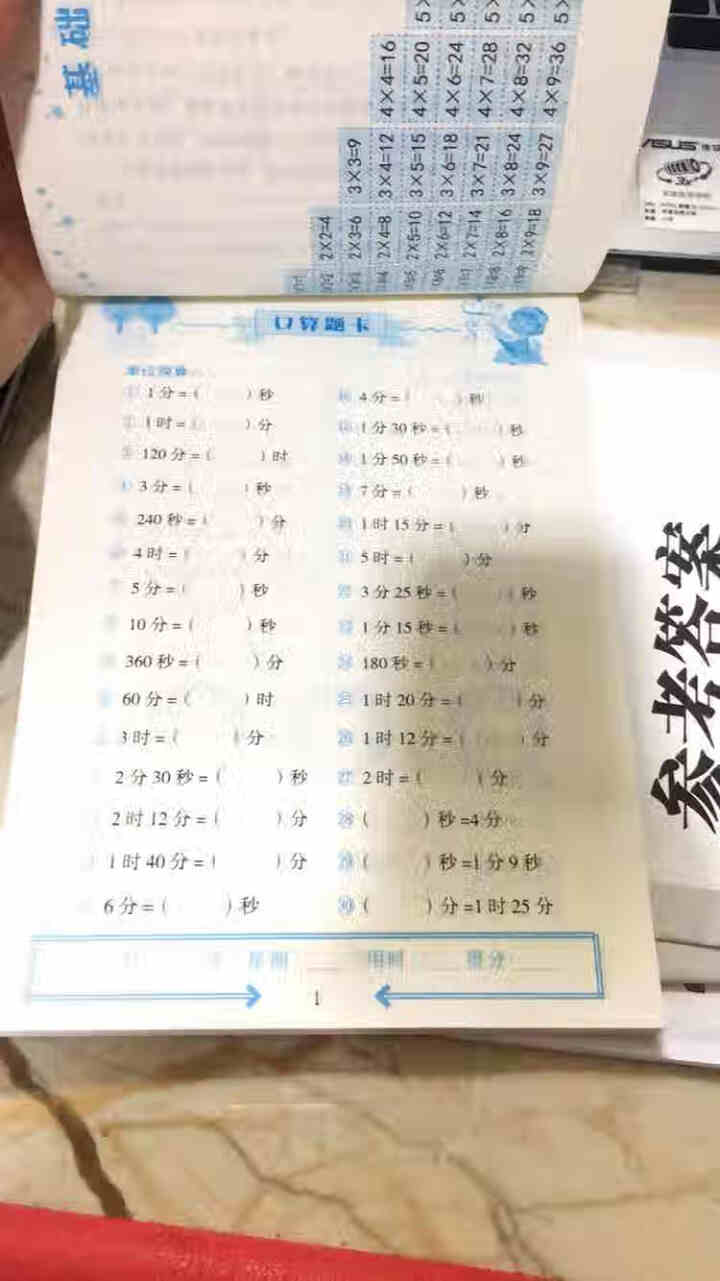 基础
2×2=4
2×3=6 3×3=9
2×4=8 3×4=12 4×4=16
2×5=10 3×5=15 4×5=20
2×6=12 3×6=18 4×6=24
2×7=14 3×7=21 4×7=28
2×8=16 3×8=24 4×8=32
2×9=18 3×9=27 4×9=36
ASUS
参考答案
1分=( )秒
1时=( )分
120分=( )时
3分=( )秒
240秒=( )分
4时=( )分
5分=( )秒
10分=( )秒
360秒=( )分
60分=( )时
3时=( )分
2分30秒=( )秒
2时12分=( )分
1时40分=( )分
6分=( )秒
4分=( )秒
1分30秒=( )秒
1分50秒=( )秒
7分=( )秒
1时15分=( )分
5时=( )分
3分25秒=( )秒
1分15秒=( )秒
180秒=( )分
1时20分=( )分
1时12分=( )分
㉗ 2时=( )分
㉘ ( )秒=4分
㉙ ( )秒=1分9秒
㉚ ( )分=1时25分
星期 用时 得分
1